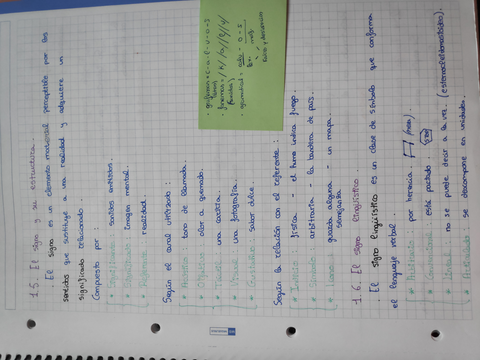 1.5. El signo y su estructura.
El signo es un elemento material perceptible por los
sentidos que sustituye a una realidad y adquiere un
significado relacionado
Compuesto por:
* Significante: sonidos emitidos.
* Significado: Imagen mental.
* Referente: realidad.
Según el canal utilizado:
* Acústico: tono de llamada.
* Olfativo: olor a quemado.
una caricia.
* Visual: una fotografía.
* Gustativo: sabor dulce.
Según la relación con el referente:
* Indicio: física - el humo indica fuego.
* Símbolo: arbitraria - la bandera de país.
* Icono: guarda alguna semejanza - un mapa.
1.6. El signo lingüístico
. El signo lingüístico es un clase de símbolo que conforma
el lenguaje verbal.
* Arbitrario: por herencia. /mesa/
* Consensuado: está pactado.
* Lineal: no se puede decir a la vez.
* Articulado: se descompone en unidades.